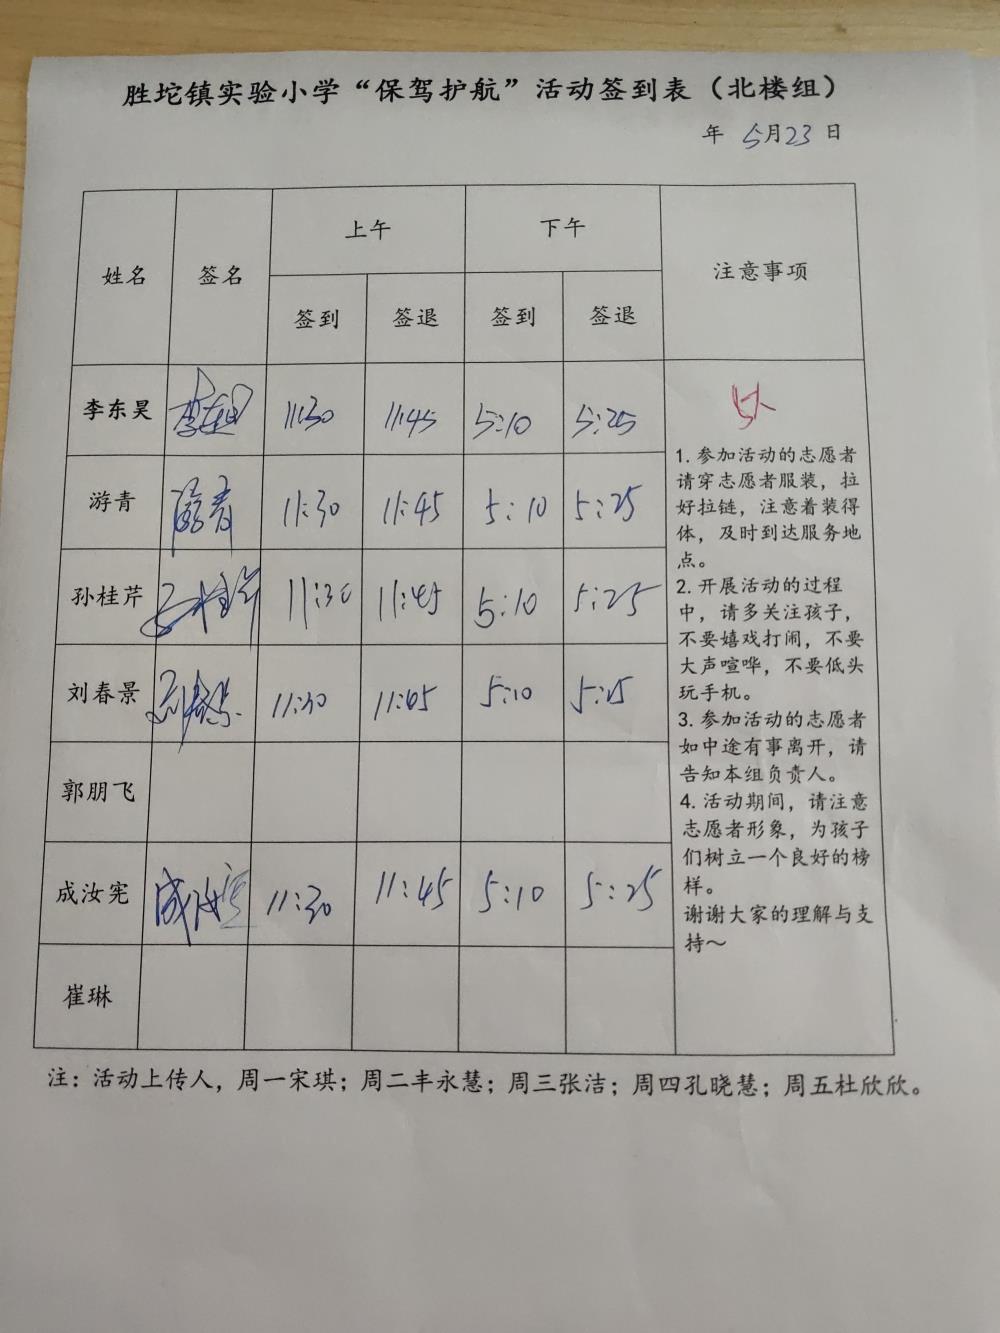 胜坨镇实验小学“保驾护航”活动签到表（北楼组）
年 5月23日
姓名 签名 上午 下午 注意事项
签到 签退 签到 签退
李东昊 李东昊 11:30 11:45 5:10 5:25
游青 游青 11:30 11:45 5:10 5:25
孙桂芹 孙桂芹 11:30 11:45 5:10 5:25
刘春景 刘春景 11:30 11:45 5:10 5:25
郭朋飞
成汝宪 成汝宪 11:30 11:45 5:10 5:25
崔琳
5人
1. 参加活动的志愿者
请穿志愿者服装，拉
好拉链，注意着装得
体，及时到达服务地
点。
2. 开展活动的过程
中，请多关注孩子，
不要嬉戏打闹，不要
大声喧哗，不要低头
玩手机。
3. 参加活动的志愿者
如中途有事离开，请
告知本组负责人。
4. 活动期间，请注意
志愿者形象，为孩子
们树立一个良好的榜
样。
谢谢大家的理解与支
持～
注：活动上传人，周一宋琪；周二丰永慧；周三张洁；周四孔晓慧；周五杜欣欣。